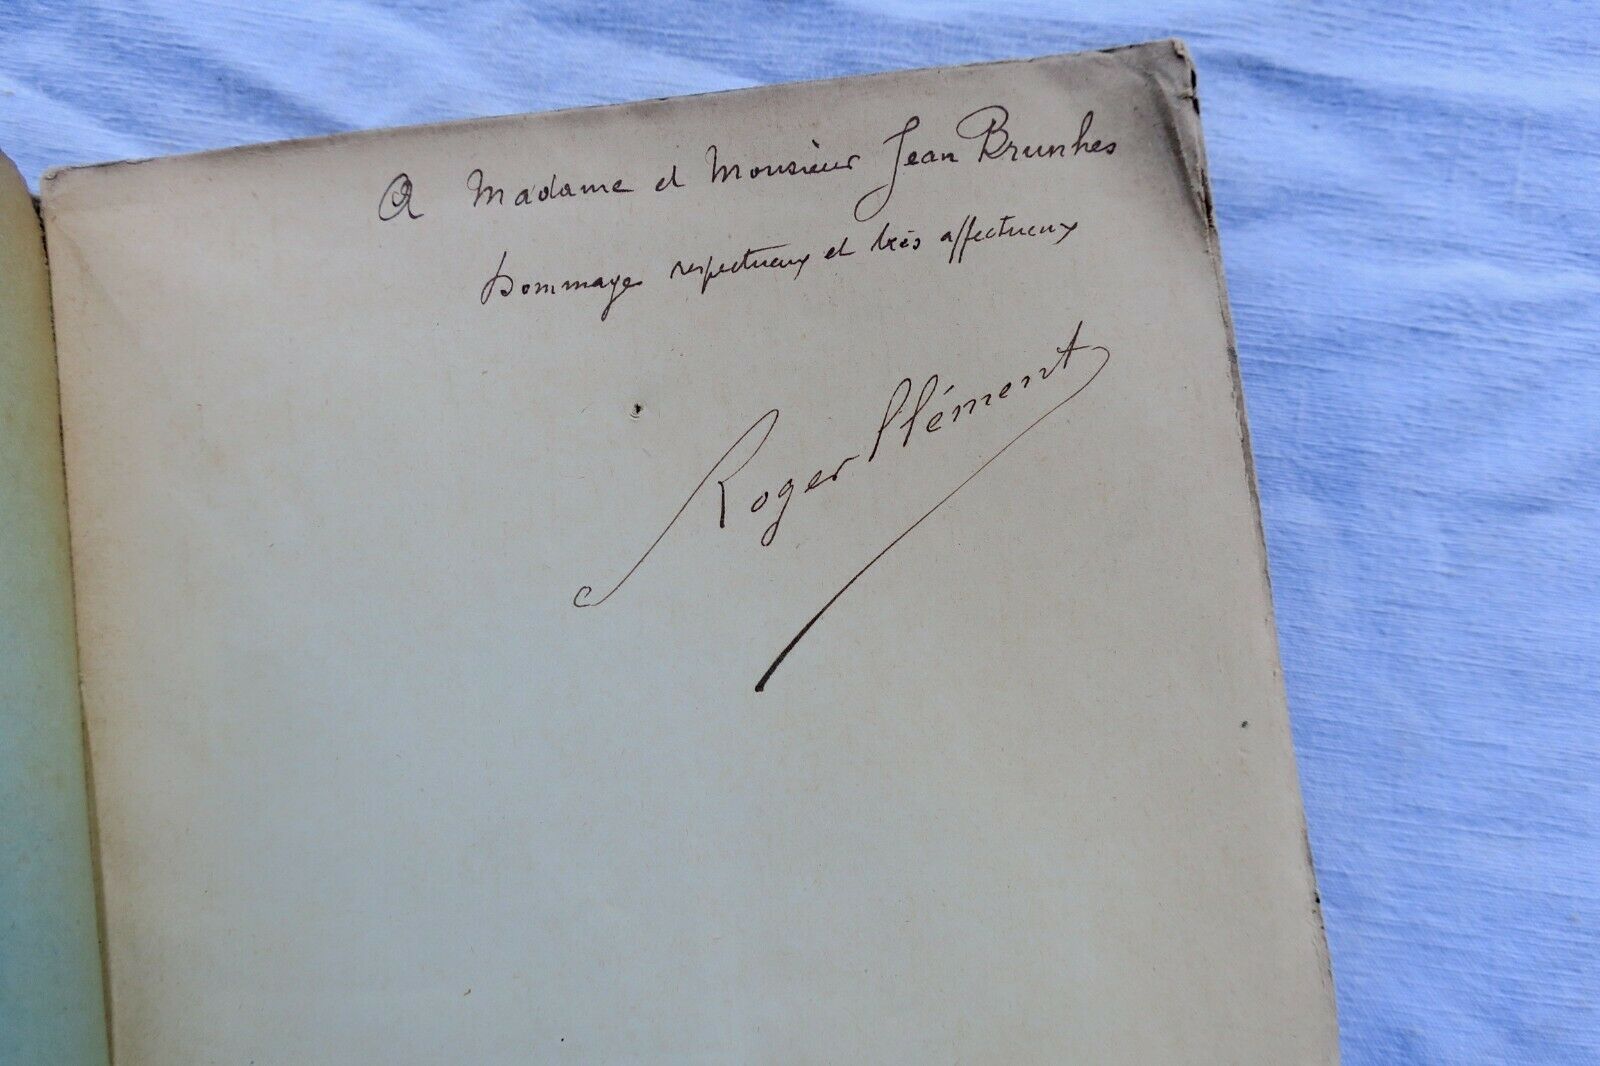 A Madame et Monsieur Jean Brunhes
hommage respectueux et très affectueux
Roger Clément